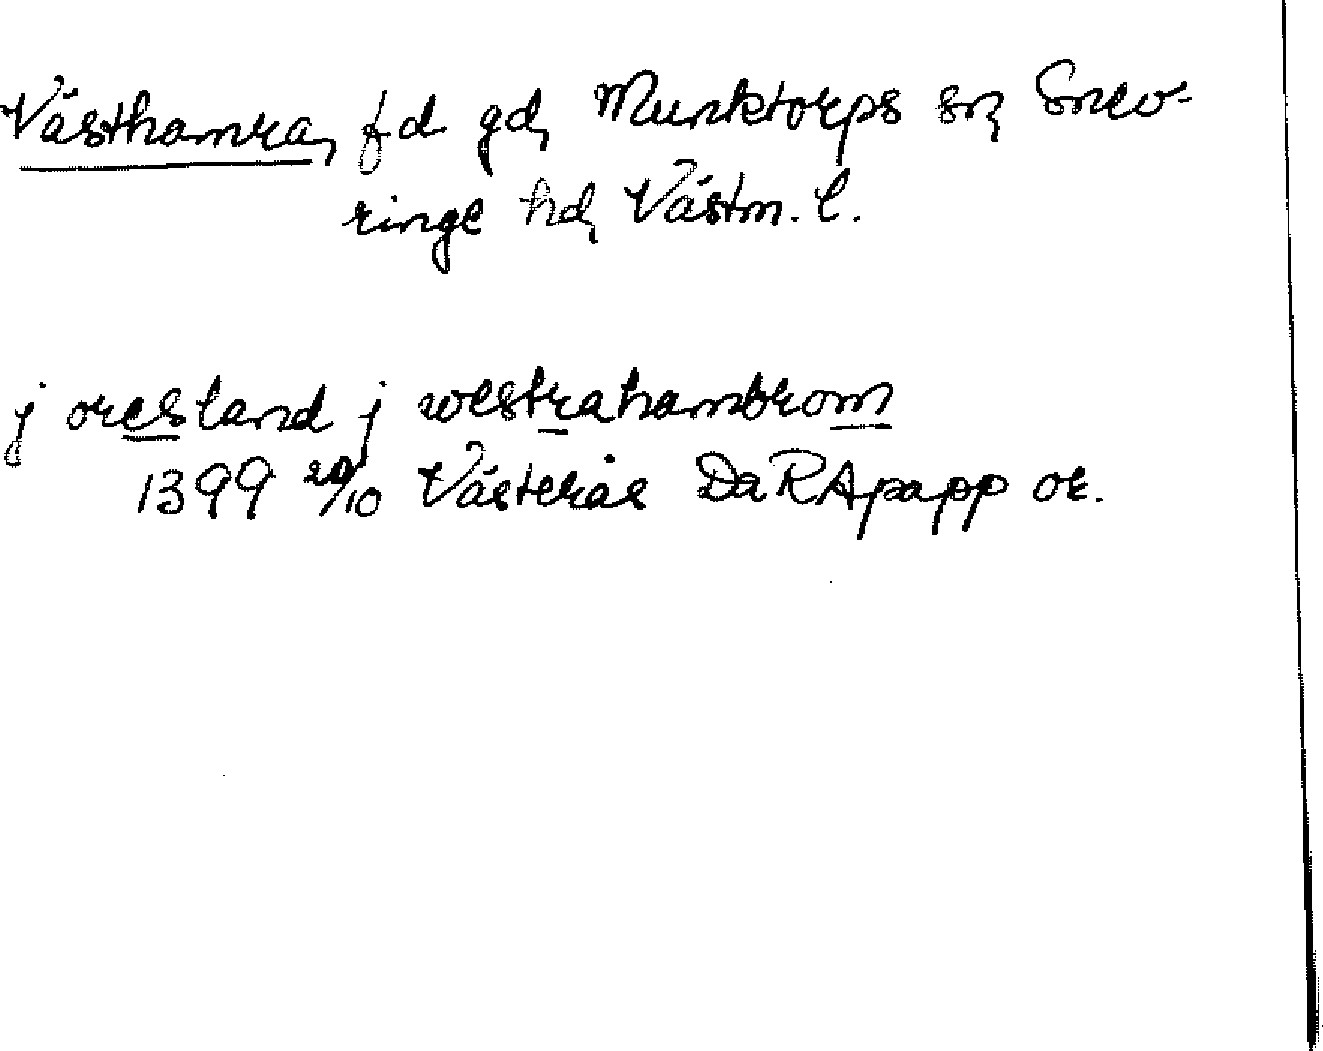 Västhamra, fd gd, Munktorps sn, Snev-
ringe hd, Västm. l.
j oresland j westrahambrom
1399 20/10 Västerås Da RApapp or.